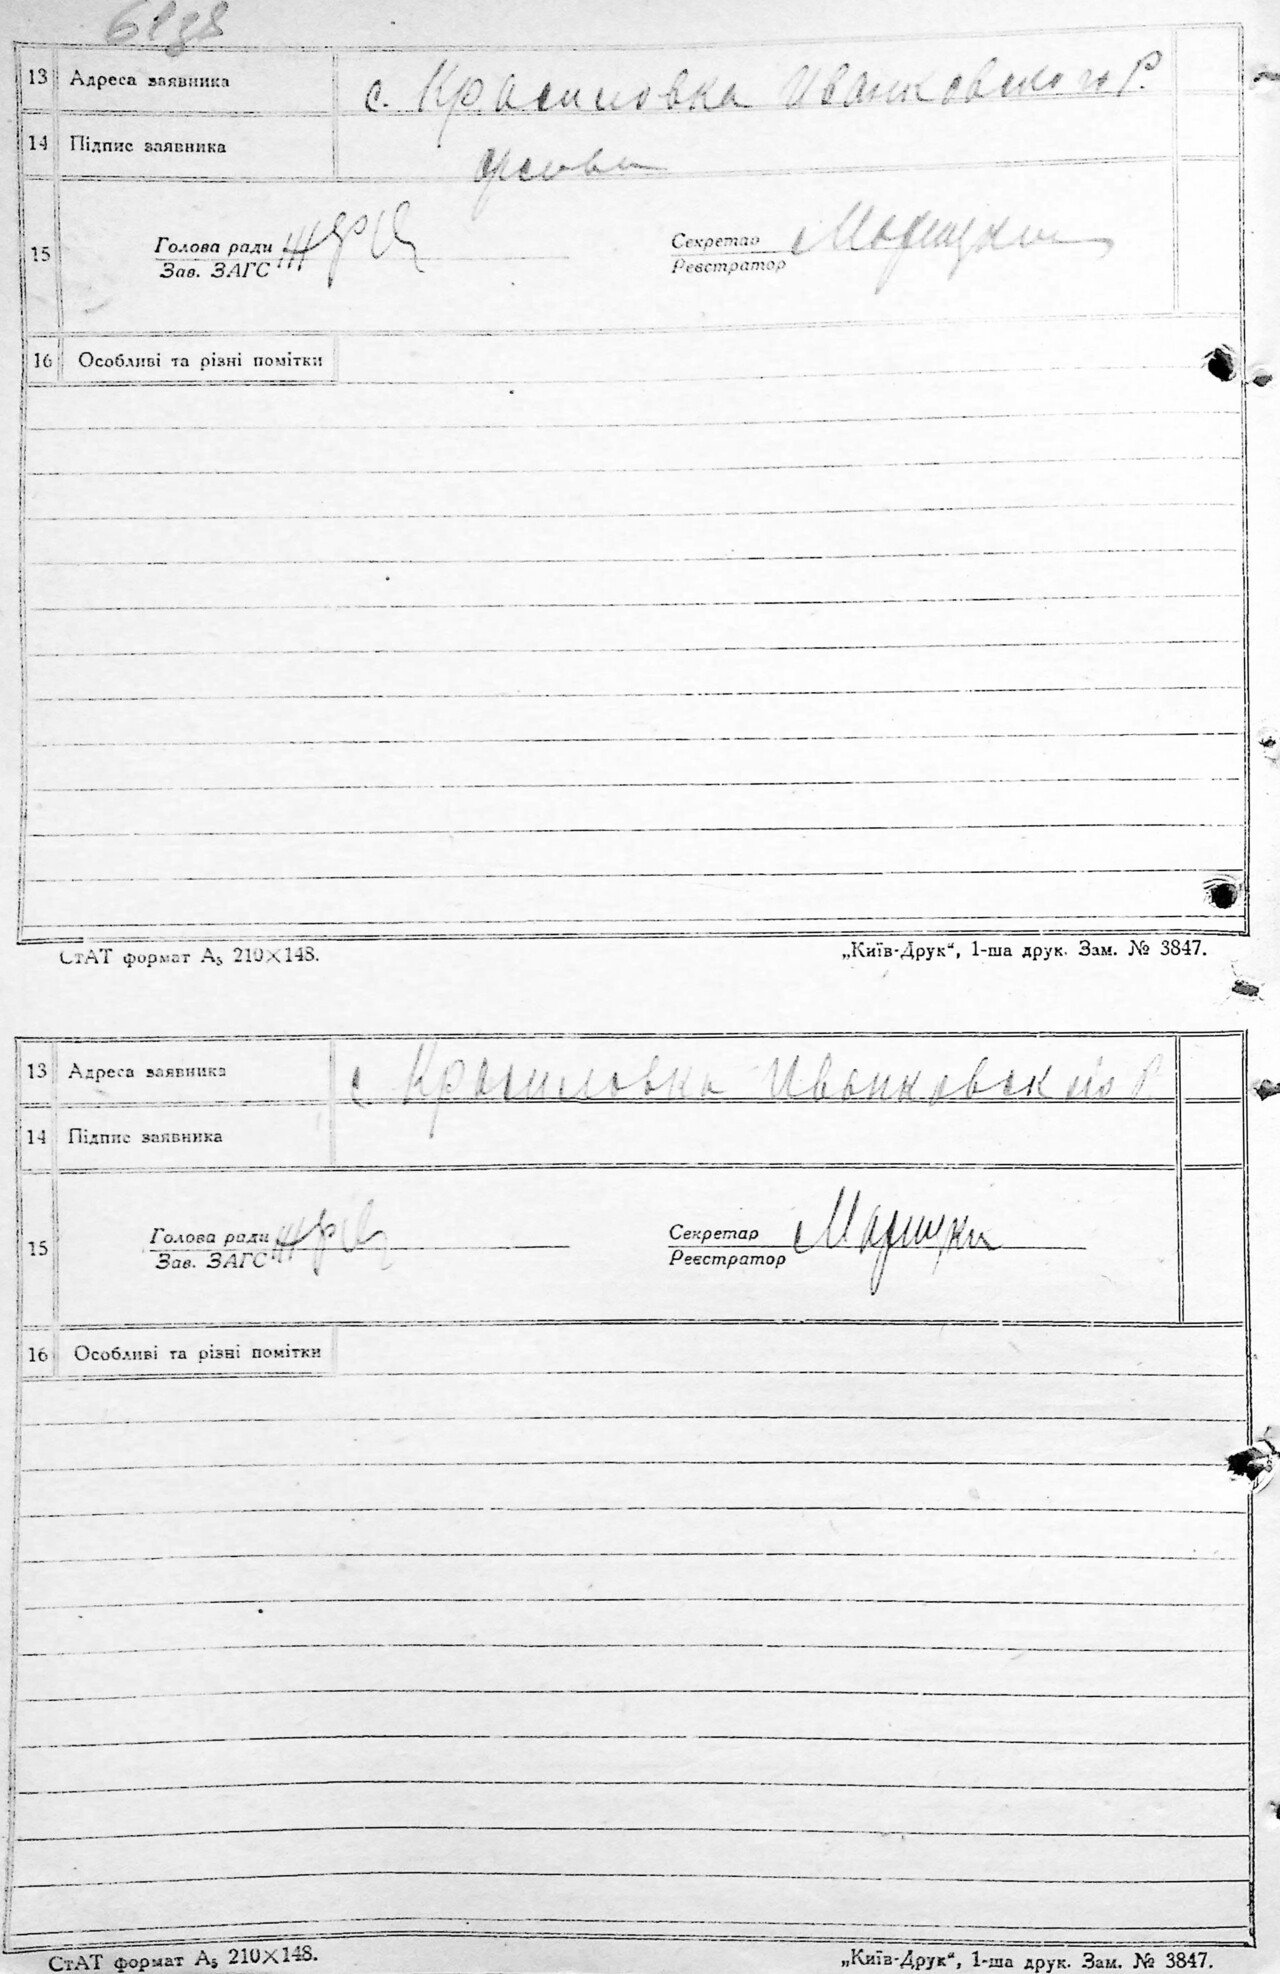 13 Адреса заявника с. Красиловка Иванковского Р.
14 Підпис заявника
15 Голова ради Секретар
Зав. ЗАГС Реєстратор
16 Особливі та різні помітки
СтАТ формат А₅ 210×148. „Київ-Друк“, 1-ша друк. Зам. № 3847.
13 Адреса заявника с Красиловка Иванковского Р
14 Підпис заявника
15 Голова ради Секретар
Зав. ЗАГС Реєстратор
16 Особливі та різні помітки
СтАТ формат А₅ 210×148. „Київ-Друк“, 1-ша друк. Зам. № 3847.